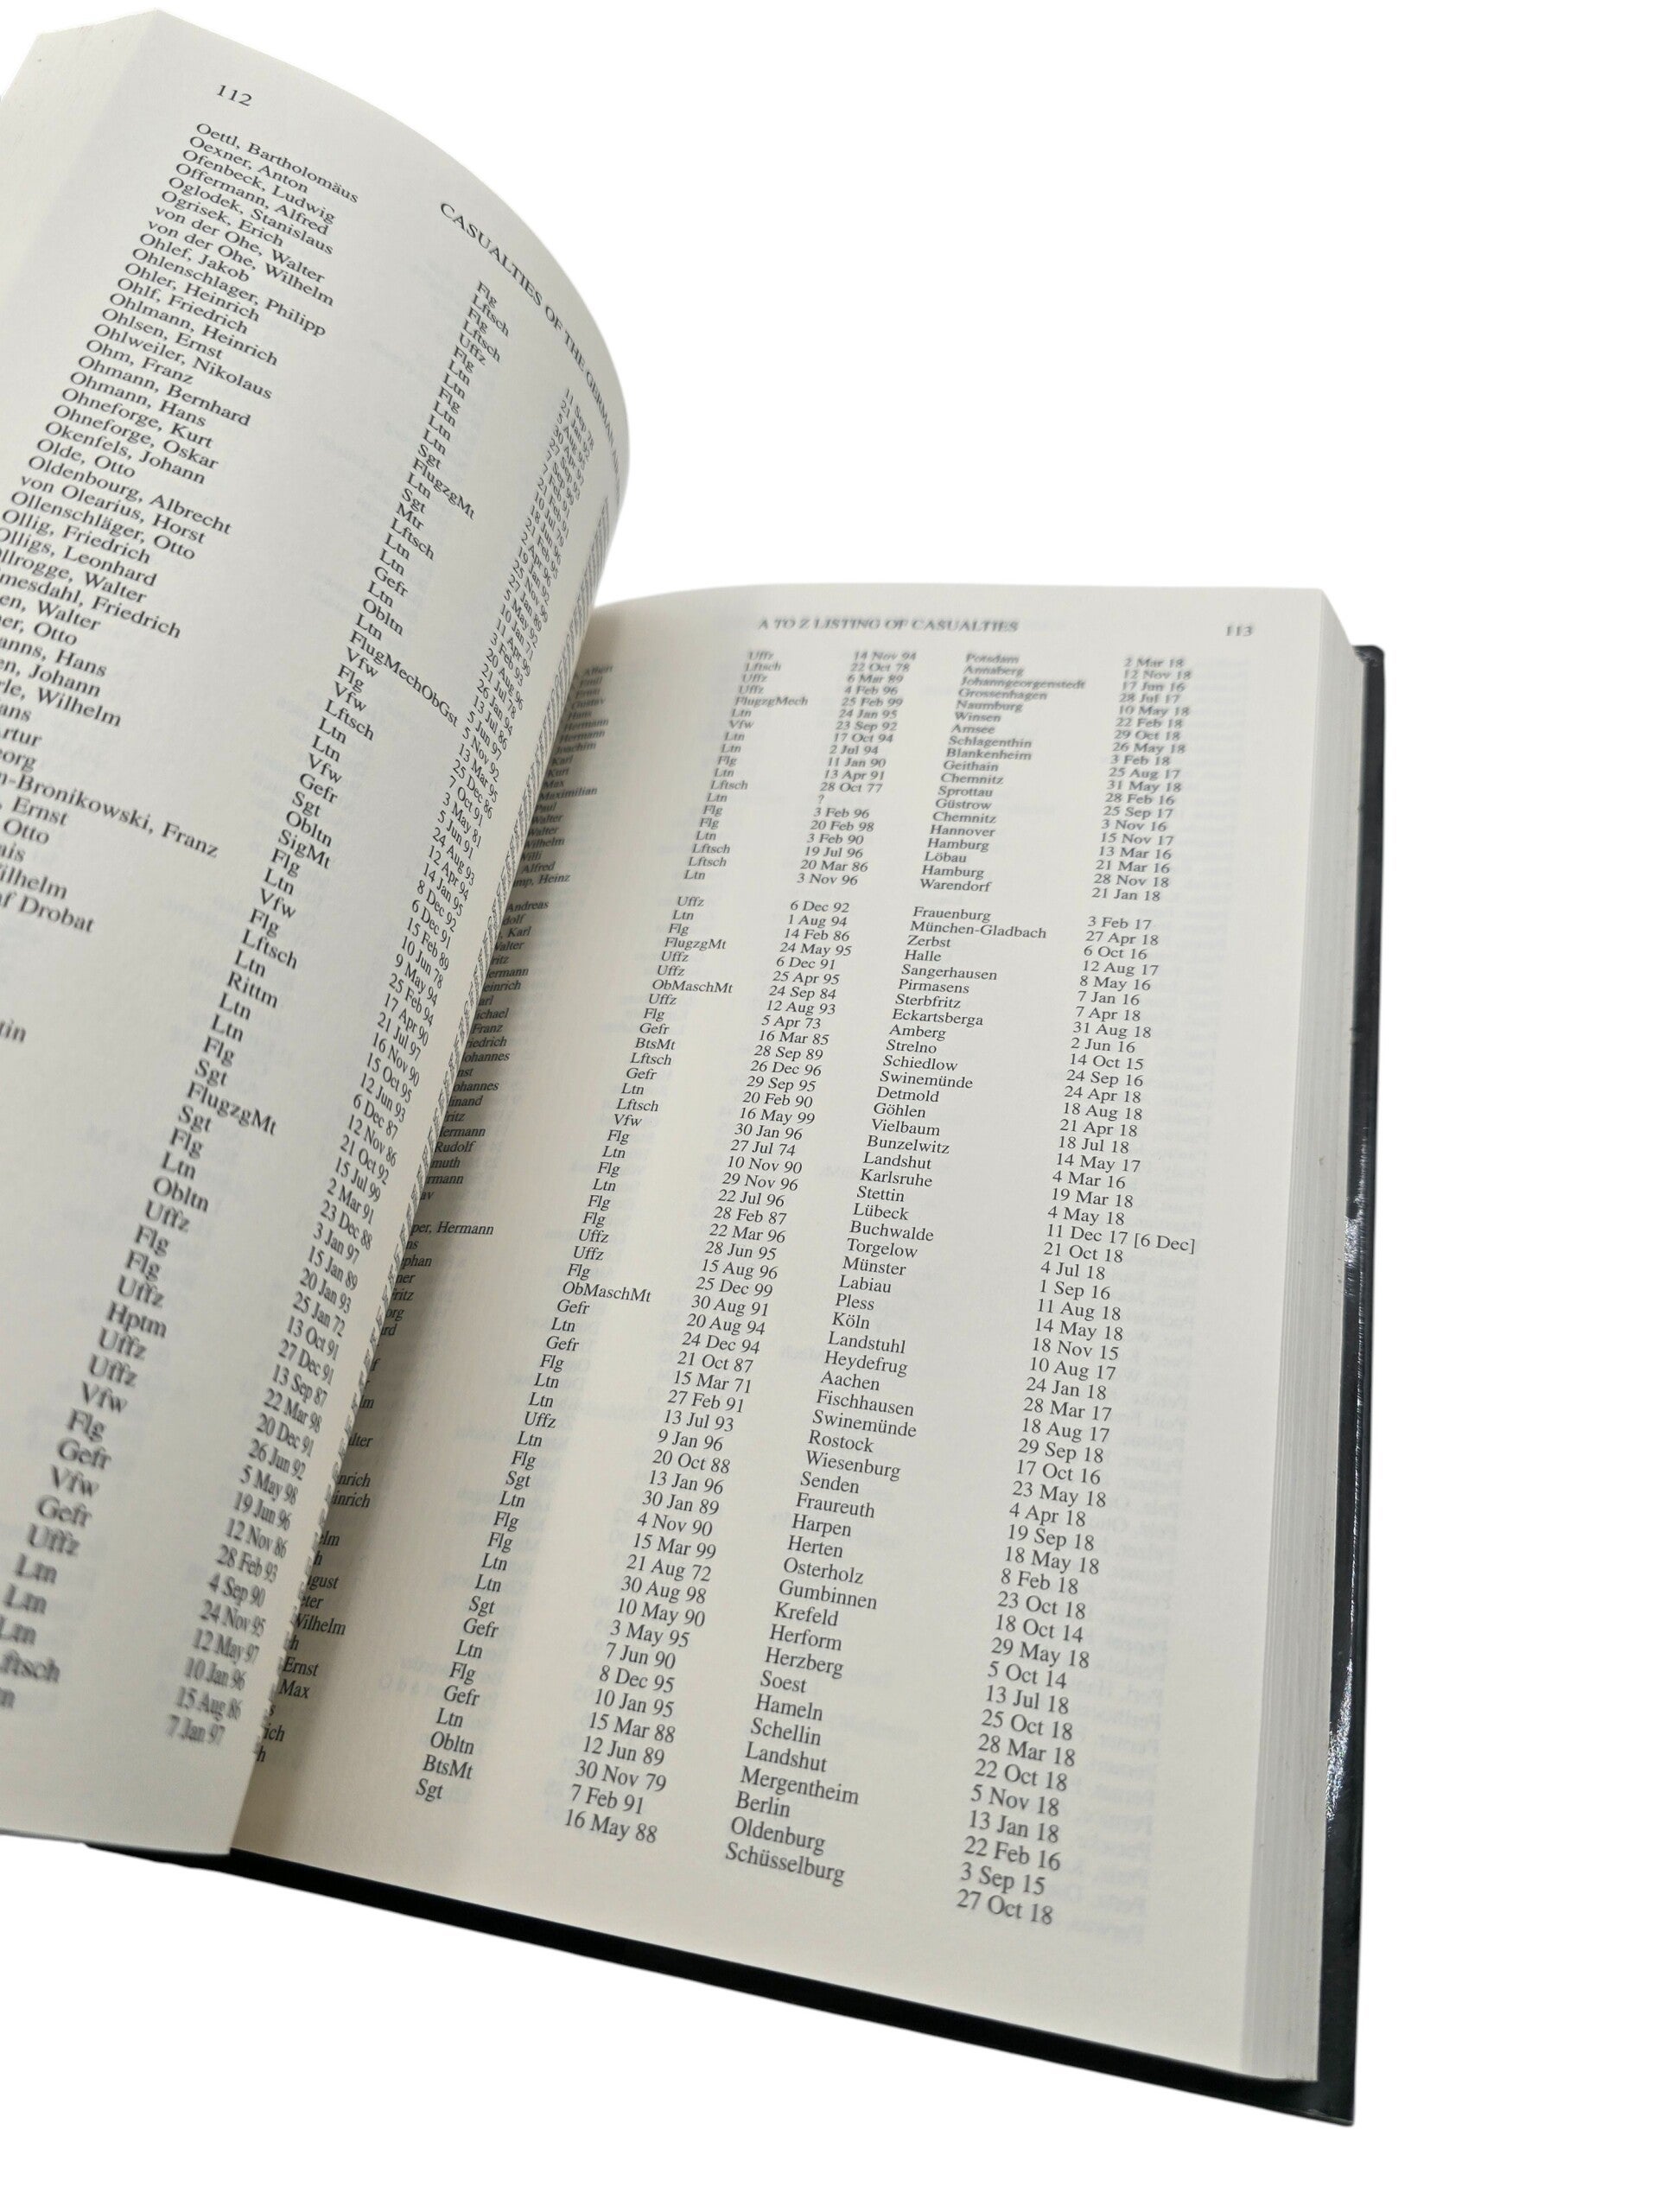 112
CASUALTIES OF THE GERMAN AIR
Oettl, Bartholomäus
Oexner, Anton
Ofenbeck, Ludwig
Offermann, Alfred
Oglodek, Stanislaus
Ogrisek, Erich
von der Ohe, Walter
von der Ohe, Wilhelm
Ohlef, Jakob
Ohlenschlager, Philipp
Ohler, Heinrich
Ohlf, Friedrich
Ohlmann, Heinrich
Ohlsen, Ernst
Ohlweiler, Nikolaus
Ohm, Franz
Ohmann, Bernhard
Ohmann, Hans
Ohneforge, Kurt
Ohneforge, Oskar
Okenfels, Johann
Olde, Otto
Oldenbourg, Albrecht
von Olearius, Horst
Ollenschläger, Otto
Ollig, Friedrich
Olligs, Leonhard
llrogge, Walter
mesdahl, Friedrich
en, Walter
er, Otto
anns, Hans
en, Johann
rle, Wilhelm
ans
rtur
org
n-Bronikowski, Franz
, Ernst
Otto
ais
ilhelm
af Drobat
tin
Flg
Lftsch
Flg
Lftsch
Uffz
Flg
Ltn
Ltn
Flg
Ltn
Ltn
Ltn
Sgt
FlugzgMt
Ltn
Sgt
Mtr
Lftsch
Ltn
Ltn
Gefr
Ltn
Obltn
Ltn
FlugMechObGst
Vfw
Flg
Vfw
Lftsch
Ltn
Ltn
Vfw
Gefr
Sgt
Obltn
SigMt
Flg
Ltn
Vfw
Flg
Lftsch
Ltn
Rittm
Ltn
Ltn
Flg
Sgt
FlugzgMt
Sgt
Flg
Ltn
Obltn
Uffz
Flg
Flg
Uffz
Hptm
Uffz
Uffz
Vfw
Flg
Gefr
Vfw
Gefr
Uffz
Ltn
Ltn
Ltn
Lftsch
5 May 92
10 Jan 71
11 Apr 99
3 Feb 93
20 Aug 96
21 Jul 78
26 Jan 94
13 Jul 86
5 Jun 97
5 Nov 92
13 Mar 95
25 Dec 86
7 Oct 91
3 May 81
5 Jun 91
24 Aug 93
12 Apr 94
14 Jan 95
8 Dec 92
6 Dec 91
15 Feb 89
10 Jun 78
9 May 94
25 Feb 94
17 Apr 90
21 Jul 97
16 Nov 90
15 Oct 95
12 Jun 93
6 Dec 87
12 Nov 86
21 Oct 92
15 Jul 99
2 Mar 91
23 Dec 88
3 Jan 97
15 Jan 89
20 Jan 93
25 Jan 72
13 Oct 91
27 Dec 91
13 Sep 87
22 Mar 98
20 Dec 91
26 Jun 92
5 May 98
19 Jun 96
12 Nov 86
28 Feb 93
4 Sep 90
24 Nov 95
12 May 97
10 Jan 96
15 Aug 86
7 Jan 97
A TO Z LISTING OF CASUALTIES 113
Uffz 14 Nov 94 Potsdam 2 Mar 18
Lftsch 22 Oct 78 Annaberg 12 Nov 18
Uffz 6 Mar 89 Johanngeorgenstedt 17 Jun 16
Uffz 4 Feb 96 Grossenhagen 28 Jul 17
FlugzgMech 25 Feb 99 Naumburg 10 May 18
Ltn 24 Jan 95 Winsen 22 Feb 18
Vfw 23 Sep 92 Arnsee 29 Oct 18
Ltn 17 Oct 94 Schlagenthin 26 May 18
Ltn 2 Jul 94 Blankenheim 3 Feb 18
Flg 11 Jan 90 Geithain 25 Aug 17
Ltn 13 Apr 91 Chemnitz 31 May 18
Lftsch 28 Oct 77 Sprottau 28 Feb 16
Ltn ? Güstrow 25 Sep 17
Flg 3 Feb 96 Chemnitz 3 Nov 16
Flg 20 Feb 98 Hannover 15 Nov 17
Ltn 3 Feb 90 Hamburg 13 Mar 16
Lftsch 19 Jul 96 Löbau 21 Mar 16
Alfred Lftsch 20 Mar 86 Hamburg 28 Nov 18
mp, Heinz Ltn 3 Nov 96 Warendorf 21 Jan 18
Andreas Uffz 6 Dec 92 Frauenburg 3 Feb 17
dolf Ltn 1 Aug 94 München-Gladbach 27 Apr 18
, Karl Flg 14 Feb 86 Zerbst 6 Oct 16
alter FlugzgMt 24 May 95 Halle 12 Aug 17
ritz Uffz 6 Dec 91 Sangerhausen 8 May 16
ermann Uffz 25 Apr 95 Pirmasens 7 Jan 16
einrich ObMaschMt 24 Sep 84 Sterbfritz 7 Apr 18
arl Uffz 12 Aug 93 Eckartsberga 31 Aug 18
ichael Flg 5 Apr 73 Amberg 2 Jun 16
Franz Gefr 16 Mar 85 Strelno 14 Oct 15
iedrich BtsMt 28 Sep 89 Schiedlow 24 Sep 16
ohannes Lftsch 26 Dec 96 Swinemünde 24 Apr 18
nst Gefr 29 Sep 95 Detmold 18 Aug 18
ohannes Ltn 20 Feb 90 Göhlen 21 Apr 18
inand Lftsch 16 May 99 Vielbaum 18 Jul 18
ritz Vfw 30 Jan 96 Bunzelwitz 14 May 17
ermann Flg 27 Jul 74 Landshut 4 Mar 16
Rudolf Ltn 10 Nov 90 Karlsruhe 19 Mar 18
muth Flg 29 Nov 96 Stettin 4 May 18
rmann Ltn 22 Jul 96 Lübeck 11 Dec 17 [6 Dec]
av Flg 28 Feb 87 Buchwalde 21 Oct 18
Flg 22 Mar 96 Torgelow 4 Jul 18
per, Hermann Uffz 28 Jun 95 Münster 1 Sep 16
ns Uffz 15 Aug 96 Labiau 11 Aug 18
phan Flg 25 Dec 99 Pless 14 May 18
ner ObMaschMt 30 Aug 91 Köln 18 Nov 15
ritz Gefr 20 Aug 94 Landstuhl 10 Aug 17
org Ltn 24 Dec 94 Heydefrug 24 Jan 18
rd Gefr 21 Oct 87 Aachen 28 Mar 17
Flg 15 Mar 71 Fischhausen 18 Aug 17
f Ltn 27 Feb 91 Swinemünde 29 Sep 18
r Ltn 13 Jul 93 Rostock 17 Oct 16
lm Uffz 9 Jan 96 Wiesenburg 23 May 18
Ltn 20 Oct 88 Senden 4 Apr 18
alter Flg 13 Jan 96 Fraureuth 19 Sep 18
Sgt 30 Jan 89 Harpen 18 May 18
nrich Ltn 4 Nov 90 Herten 8 Feb 18
inrich Flg 15 Mar 99 Osterholz 23 Oct 18
Flg 21 Aug 72 Gumbinnen 18 Oct 14
elm Ltn 30 Aug 98 Krefeld 29 May 18
h Ltn 10 May 90 Herform 5 Oct 14
gust Sgt 3 May 95 Herzberg 13 Jul 18
eter Gefr 7 Jun 90 Soest 25 Oct 18
Wilhelm Ltn 8 Dec 95 Hameln 28 Mar 18
h Flg 10 Jan 95 Schellin 22 Oct 18
Ernst Gefr 15 Mar 88 Landshut 5 Nov 18
Max Ltn 12 Jun 89 Mergentheim 13 Jan 18
s Obltn 30 Nov 79 Berlin 22 Feb 16
ich BtsMt 7 Feb 91 Oldenburg 3 Sep 15
h Sgt 16 May 88 Schüsselburg 27 Oct 18